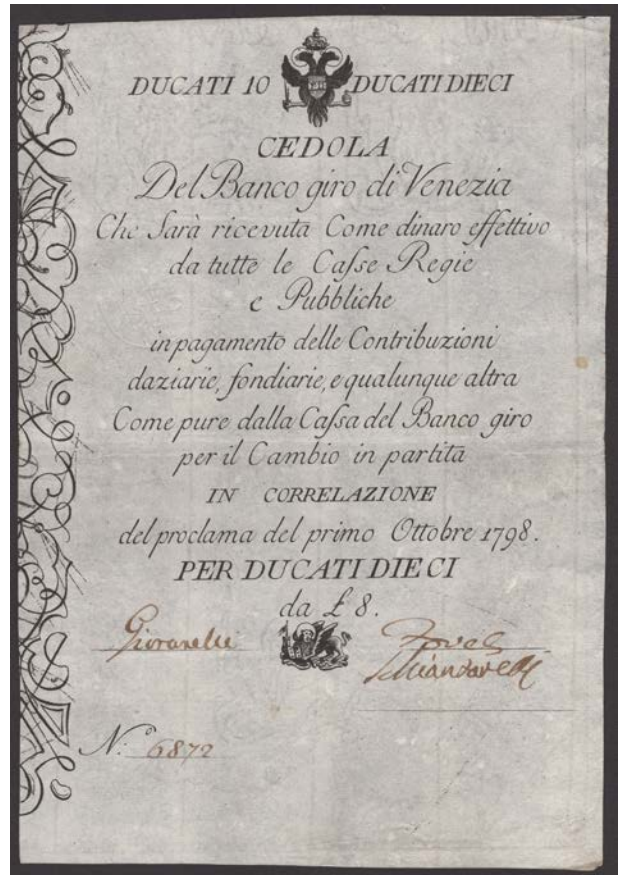 DUCATI 10 DUCATI DIECI
CEDOLA
Del Banco giro di Venezia
Che Sarà ricevuta Come dinaro effettivo
da tutte le Casse Regie
e Pubbliche
in pagamento delle Contribuzioni
daziarie, fondiarie, e qualunque altra
Come pure dalla Cassa del Banco giro
per il Cambio in partita
IN CORRELAZIONE
del proclama del primo Ottobre 1798.
PER DUCATI DIECI
da £ 8.
Giovanelli
N.º 6872